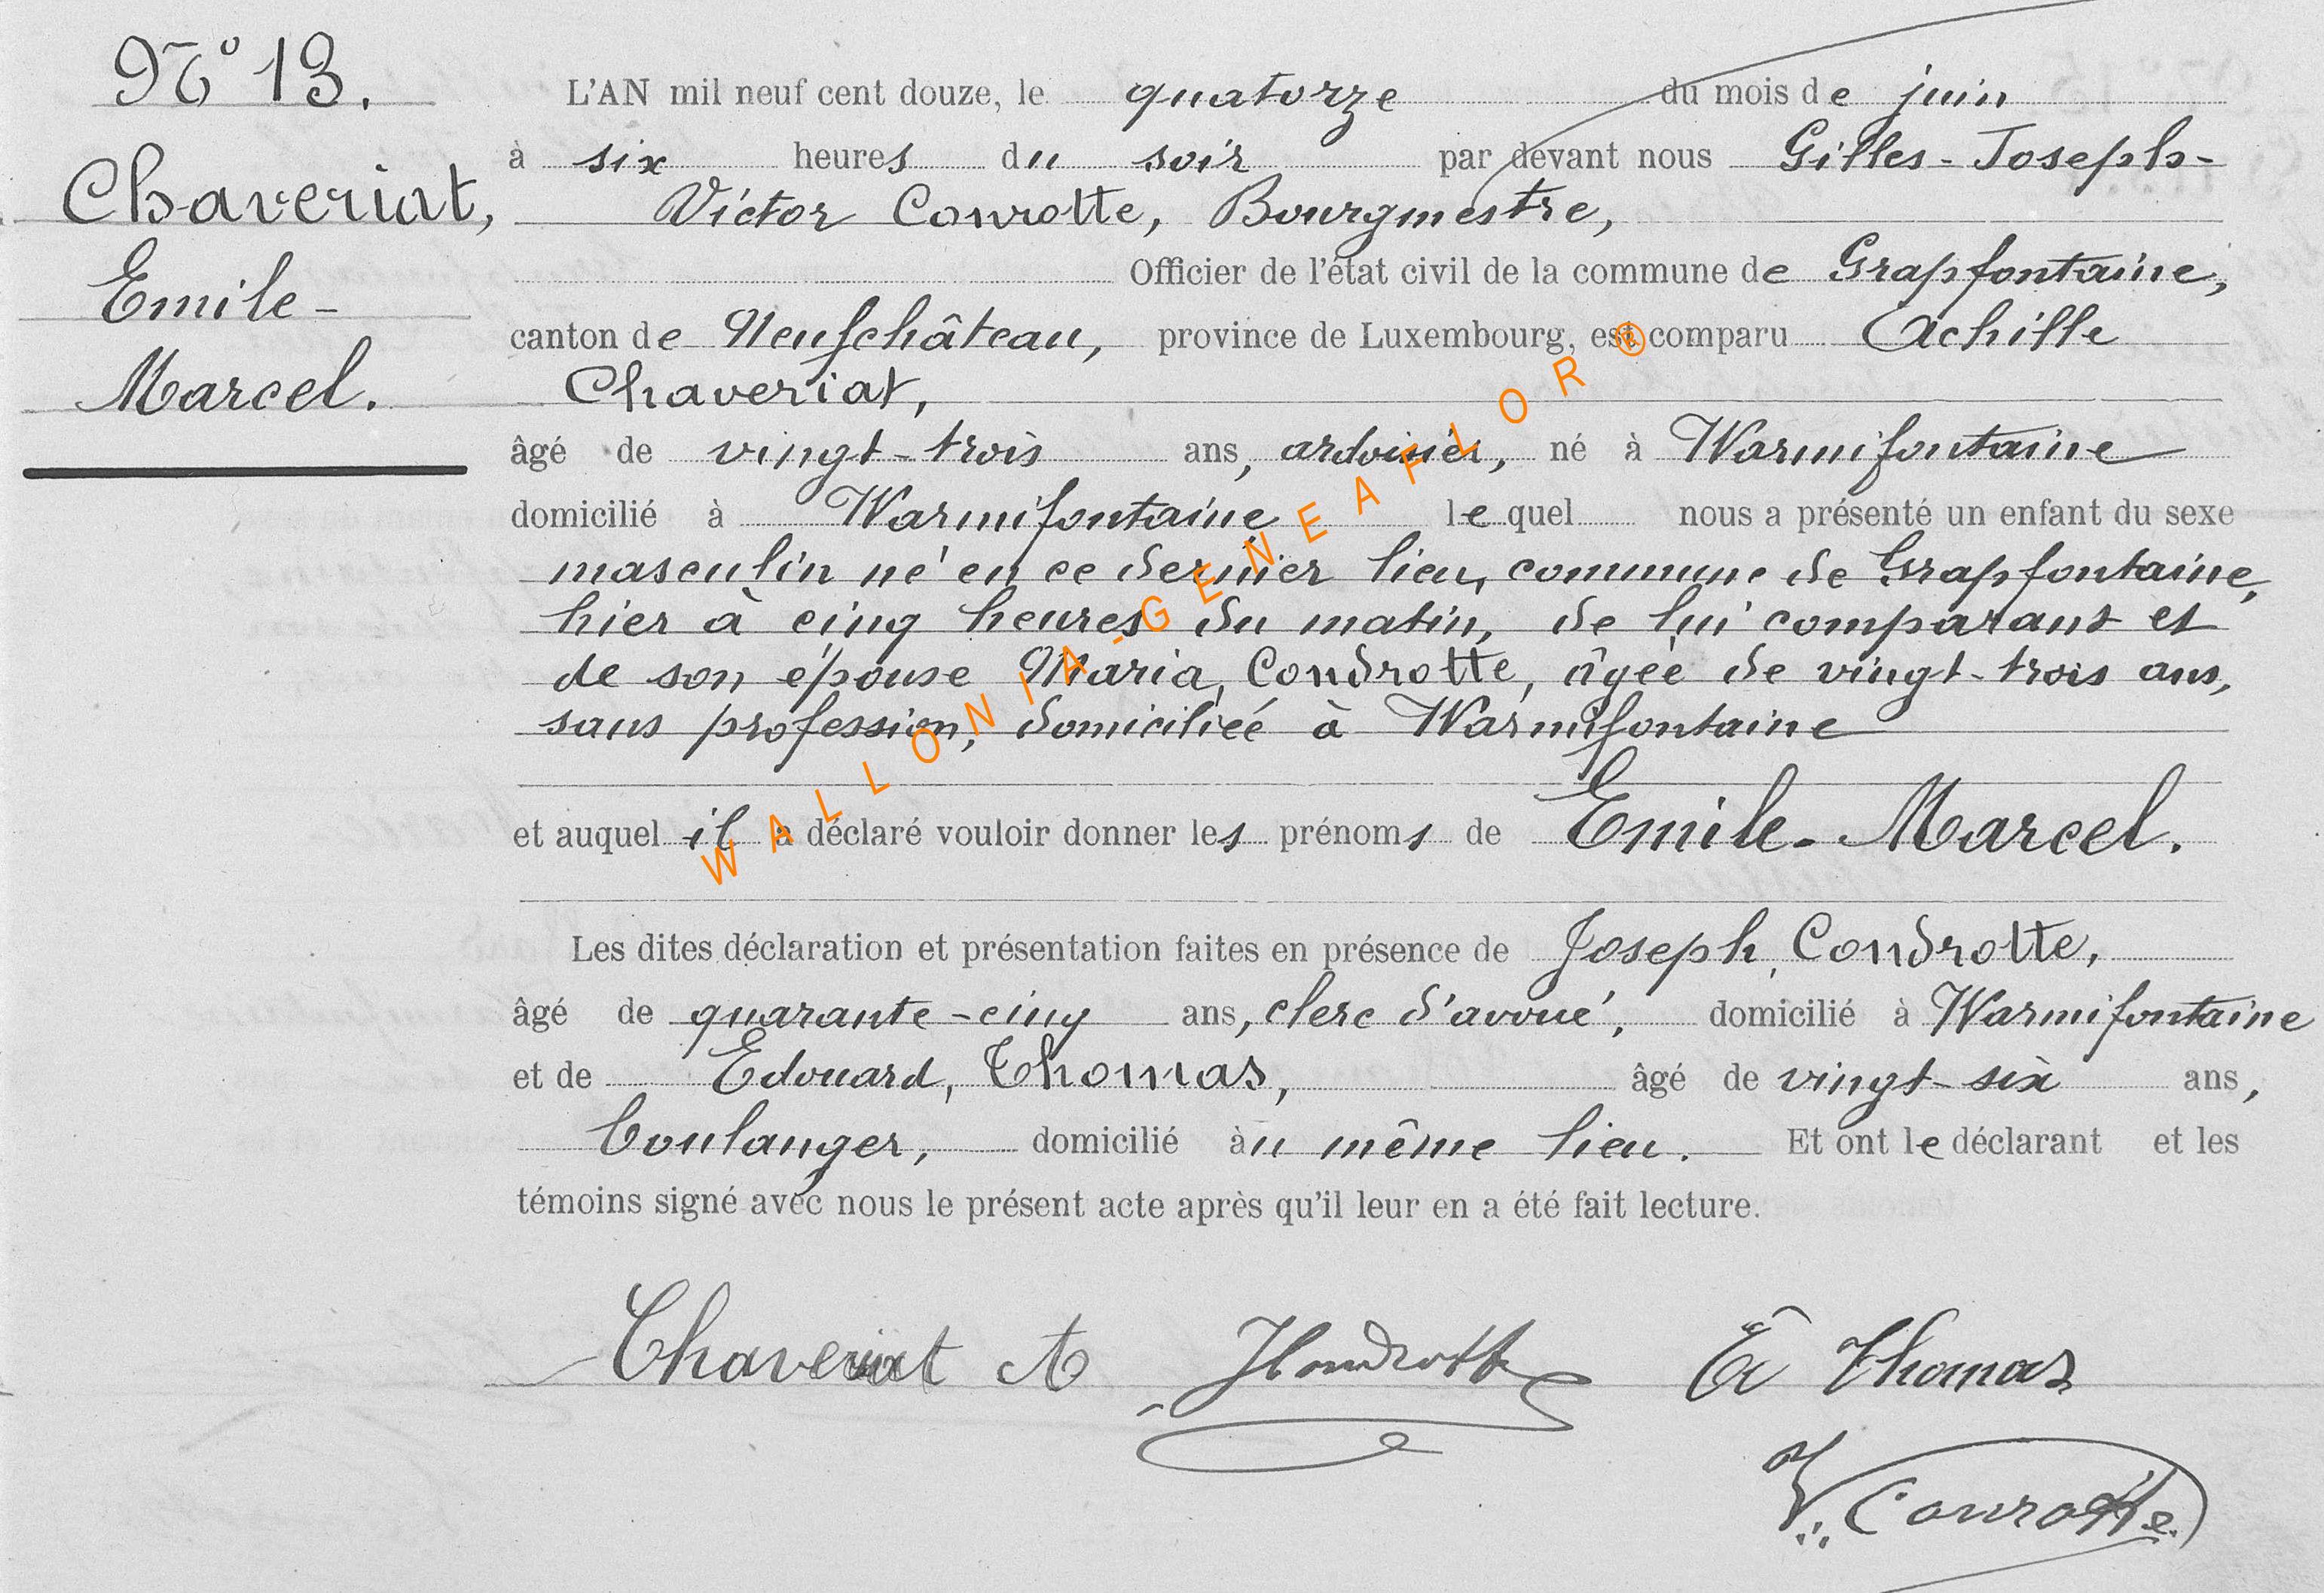 N° 13.
Chaveriat,
Emile-
Marcel.
L'AN mil neuf cent douze, le quatorze du mois de juin
à six heures du soir par devant nous Gilles-Joseph-
Victor Conrotte, Bourgmestre,
Officier de l'état civil de la commune de Grapfontaine,
canton de Neufchâteau, province de Luxembourg, est comparu Achille
Chaveriat,
âgé de vingt-trois ans, ardoisier, né à Warmifontaine
domicilié à Warmifontaine lequel nous a présenté un enfant du sexe
masculin né en ce dernier lieu, commune de Grapfontaine,
hier à cinq heures du matin, de lui comparant et
de son épouse Maria, Condrotte, âgée de vingt-trois ans,
sans profession, domiciliée à Warmifontaine
et auquel il a déclaré vouloir donner les prénoms de Emile-Marcel.
Les dites déclaration et présentation faites en présence de Joseph, Condrotte,
âgé de quarante-cinq ans, clerc d'avoué, domicilié à Warmifontaine
et de Edouard, Thomas, âgé de vingt-six ans,
boulanger, domicilié àu même lieu. Et ont le déclarant et les
témoins signé avec nous le présent acte après qu'il leur en a été fait lecture.
Chaveriat A JCondrotte Ed Thomas
V. Conrotte
WALLONIA-GENEAFLOR®